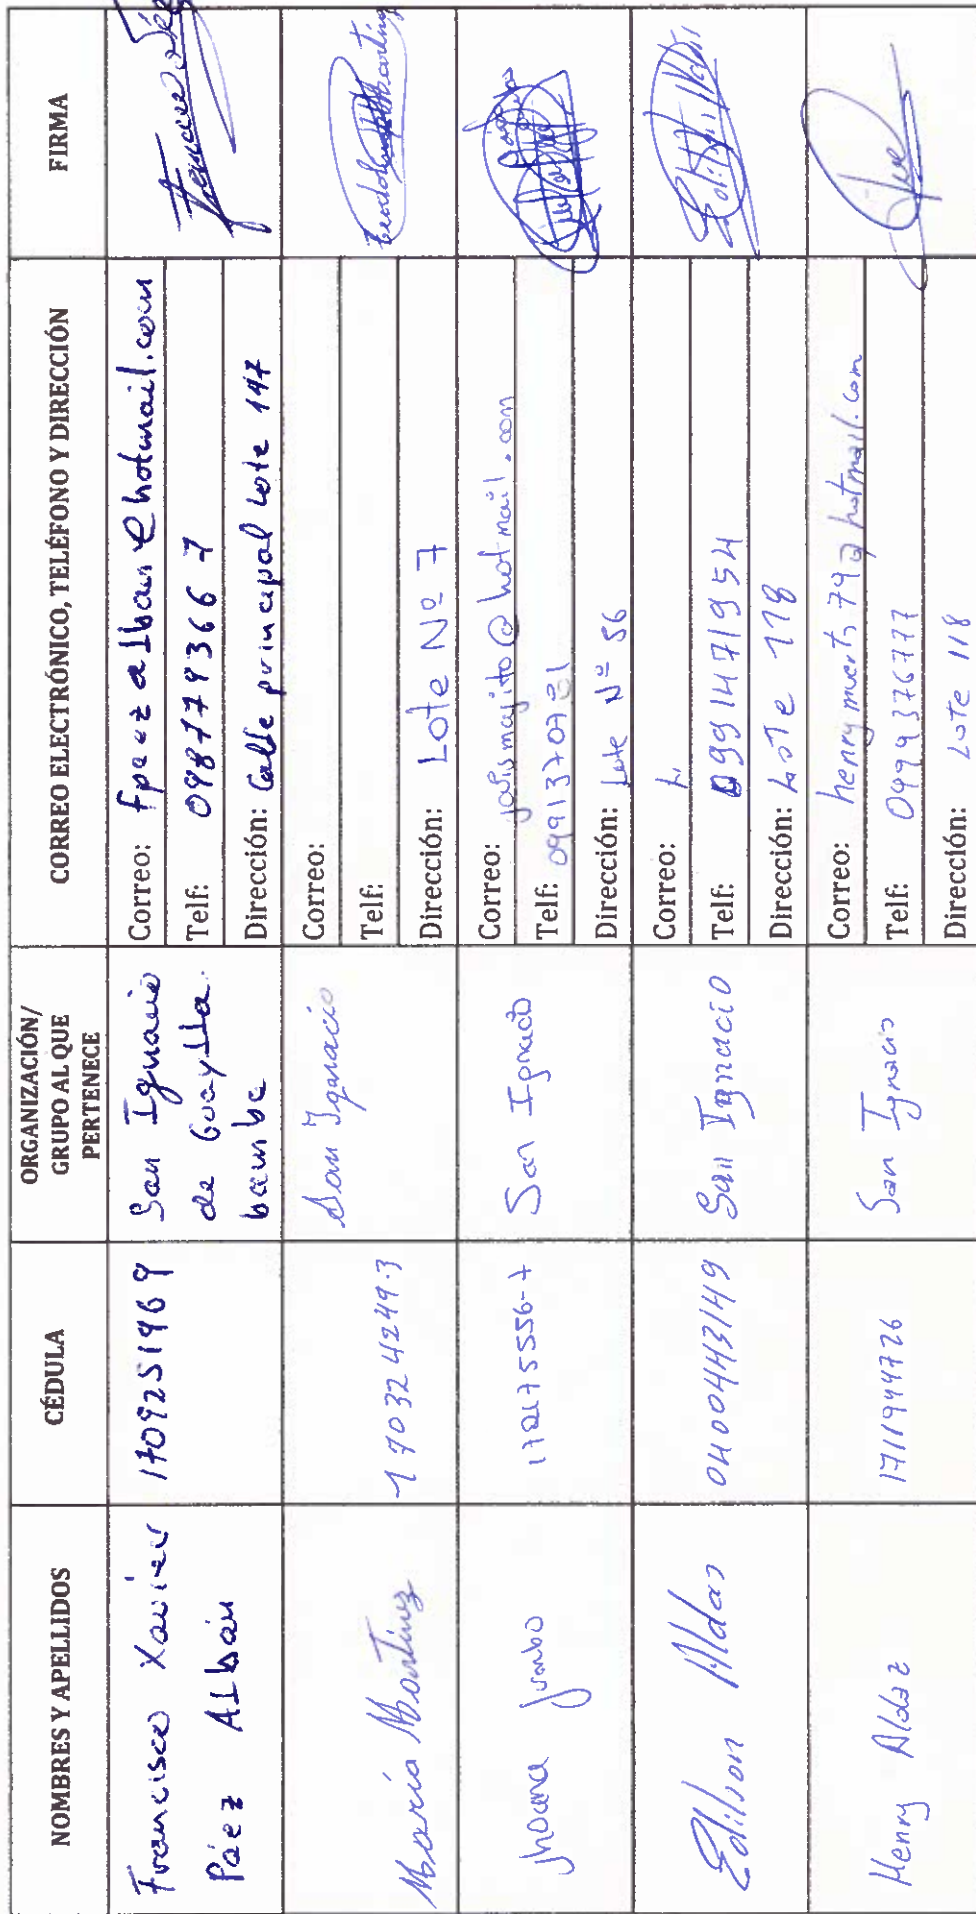 NOMBRES Y APELLIDOS
CÉDULA
ORGANIZACIÓN/
GRUPO AL QUE
PERTENECE
CORREO ELECTRÓNICO, TELÉFONO Y DIRECCIÓN
FIRMA
Francisco Xavier
Páez Albán
1709251969
San Ignacio
de Guaylla
bamba
Correo: fpaezalban@hotmail.com
Telf: 0987793667
Dirección: Calle principal Lote 147
María Martínez
170324249-3
San Ignacio
Correo:
Telf:
Dirección: Lote Nº 7
Jhoana Jumbo
San Ignacio
Correo: @hotmail.com
Telf:
Dirección: Lote Nº 56
Edilson Aldas
0400443149
San Ignacio
Correo:
Telf: 0991471954
Dirección: Lote 118
Henry Aldaz
1711944726
San Ignacio
Correo: @hotmail.com
Telf: 0999376777
Dirección: Lote 118